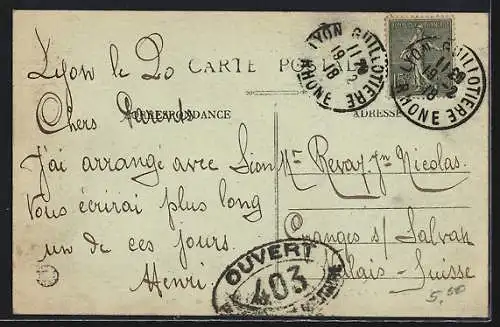 LYON GUILLOTIERE
RHONE
CARTE POSTALE
LYON GUILLOTIERE
RHONE
Lyon le 20
CORRESPONDANCE
ADRESSE
Chers Parents
J'ai arrangé avec Lion
Vous écrirai plus long
un de ces jours.
Henri.
Mr. Revaz Jn Nicolas.
Granges s/ Salvan
Valais-Suisse
OUVERT
403
5,50